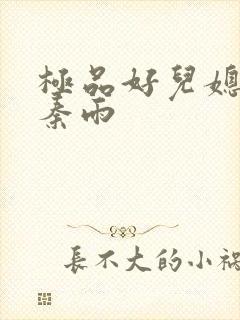 極品好兒媳
秦雨
長不大的小禍